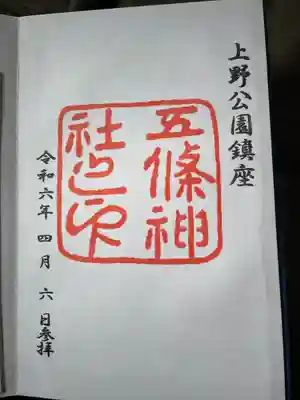 上野公園鎮座
五條神
社之印
令和六年 四月 六 日参拝